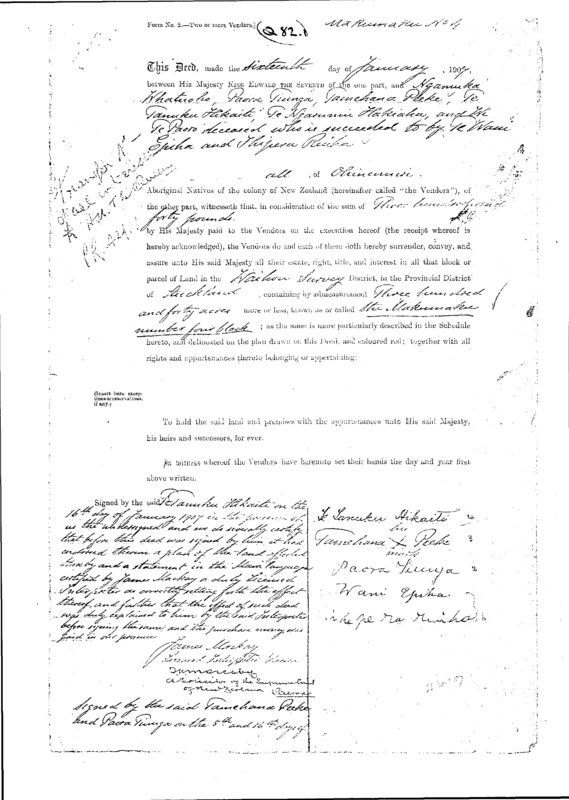 Form No. 2.—Two or more Vendors.] (Q 82.)
Makumaku No 4
This Deed, made the Sixteenth day of January, 1907,
between His Majesty KING EDWARD THE SEVENTH of the one part, and
Paora Tiunga, Tamehana Peeke, Te
Tanuku Hikaiti, Te and
Te Paora deceased who is succeeded to by Te Wani
Epiha and
all , of Ohinemuri
Aboriginal Natives of the colony of New Zealand (hereinafter called "the Vendors"), of
the other part, witnesseth that, in consideration of the sum of Three hundred and
forty pounds.
by His Majesty paid to the Vendors on the execution hereof (the receipt whereof is
hereby acknowledged), the Vendors do and each of them doth hereby surrender, convey, and
assure unto His said Majesty all their estate, right, title, and interest in all that block or
parcel of Land in the Waihou Survey District, in the Provincial District
of Auckland , containing by admeasurement Three hundred
and forty acres more or less, known as or called the Makumaku
number four block ; as the same is more particularly described in the Schedule
hereto, and delineated on the plan drawn on this Deed, and coloured red; together with all
rights and appurtenances thereto belonging or appertaining:
(Insert here excep-
tions or reservations,
if any.)
To hold the said land and premises with the appurtenances unto His said Majesty,
his heirs and successors, for ever.
In witness whereof the Vendors have hereunto set their hands the day and year first
above written.
Signed by the said Te Tanuku Hikaiti on the
16th day of January 1907 in the presence of
us the undersigned and we do severally certify
that before this deed was signed by him it had
endorsed thereon a plan of the land affected
thereby and a statement in the Maori language
certified by James Mackay a duly licensed
Interpreter as correctly setting forth the effect
thereof, and further that the effect of such deed
was duly explained to him by the said Interpreter
before signing the same and the purchase money was
paid in our presence
James Mackay
Licensed Interpreter
a Solicitor of the Supreme Court
of New Zealand Paeroa
Signed by the said Tamehana Peeke
and Paora Tiunga on the 5th and 16th days of
Te Tanuku Hikaiti
his
Tamehana X Peeke
mark
Paora Tiunga
Wani Epiha